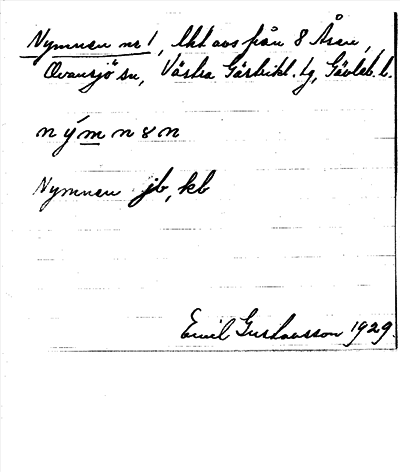 Nymuren nr 1, lht avs från 8 Åsen,
Ovansjö sn, Västra Gästrikl. tg, Gävleb. l.
n ý m n ɤ n
Nymuren jb, kb
Emil Gustavsson 1929.